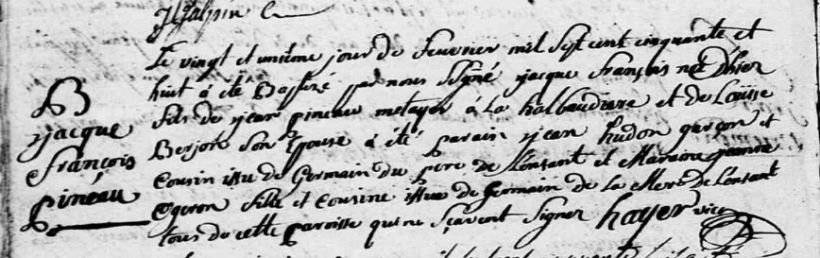 Le vingt et unième jour de feuvrier mil sept cent cinquante et
huit a été Baptizé par nous signé jacque françois né d'hier
fils de jean pineau metayer a La halbaudiere et de Louise
Berjon son Epouse a été parain jean hudon garçon et
Cousin issu de Germain du pere de L'enfant et Maraine jeanne
Ogeron fille et Cousine issue de Germain de la Mere de L'enfant
tous de cette paroisse qui ne sçavent signer hayer vice
B
jacque
françois
pineau